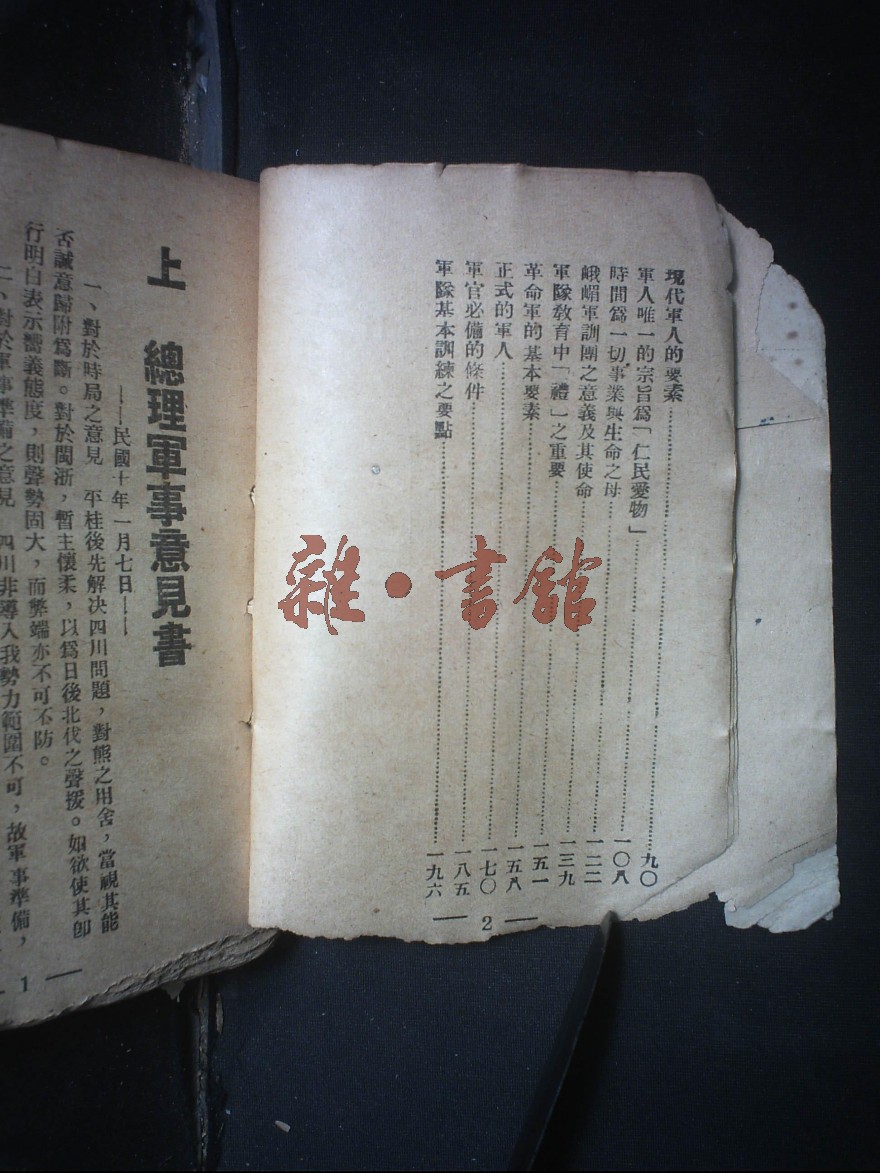 現代軍人的要素……九〇
軍人唯一的宗旨爲「仁民愛物」……一〇八
時間爲一切事業與生命之母……一二二
峨嵋軍訓團之意義及其使命……一三九
軍隊教育中「禮」之重要……一五一
革命軍的基本要素……一五八
正式的軍人……一七〇
軍官必備的條件……一八五
軍隊基本訓練之要點……一九六
— 2 —
上 總理軍事意見書
——民國十年一月七日——
一、對於時局之意見 平桂後先解決四川問題，對熊之用舍，當視其能
否誠意歸附爲斷。對於閩浙，暫主懷柔，以爲日後北伐之聲援。如欲使其卽
行明白表示嚮義態度，則聲勢固大，而弊端亦不可不防。
二、對於軍事準備之意見 四川非導入我勢力範圍不可，故軍事準備，
— 1 —
雜·書館